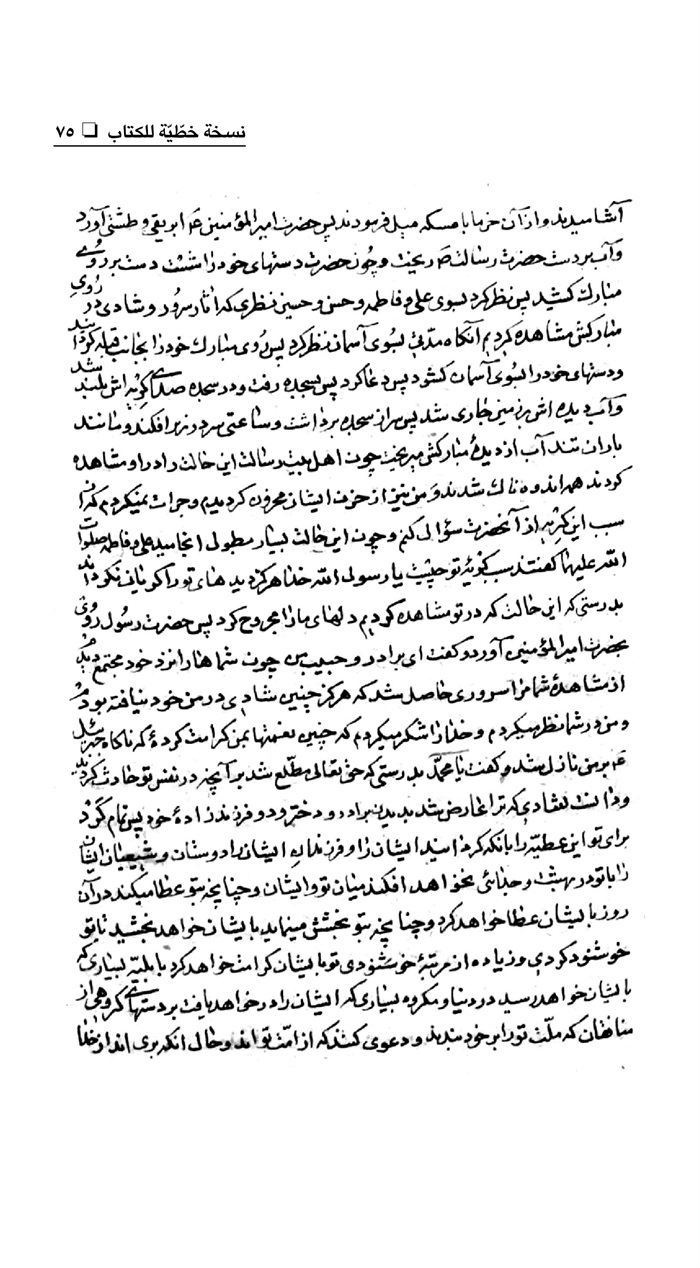 نسخة خطّيّة للكتاب ❏ ٧٥
آشامیدند و از آن خرما با مسکه میل فرمودند پس حضرت امیرالمؤمنین ع ابریقی و طشتی آورد
و آب بر دست حضرت رسالت ص ریخت و چون حضرت دستهای خود را شست دست بر روی
مبارک کشید پس نظر کرد بسوی علی و فاطمه و حسن و حسین نظری که آثار سرور و شادی در روی
مبارکش مشاهده کردیم آنگاه مدّتی بسوی آسمان نظر کرد پس روی مبارک خود را بجانب قبله گردانید
و دستهای خود را بسوی آسمان گشود پس دعا کرد پس بسجده رفت و در سجده صدای گریه اش بلند شد
و آب دیده اش بر زمین جاری شد پس سر از سجده برداشت و ساعتی سر در زیر افکند و مانند
باران تند آب از دیدهٔ مبارکش میریخت چون اهل بیت رسالت این حالت را در او مشاهده
کردند همه اندوهناک شدند و من نیز از حزن ایشان محزون گردیدم و جرات نمیکردم که از
سبب این گریه از آنحضرت سؤال کنم و چون این حالت بسیار بطول انجامید علی و فاطمه صلوات
الله علیهما گفتند سبب گریهٔ تو چیست یا رسول الله خدا هرگز دیدهای تو را گریان نگرداند
بدرستی که این حالت که در تو مشاهده کردیم دلهای ما را مجروح کرد پس حضرت رسول روی
بحضرت امیرالمؤمنین آورد و گفت ای برادر و حبیب من چون شماها را نزد خود مجتمع دیدم
از مشاهدهٔ شما مرا سروری حاصل شد که هرگز چنین شادی در من خود نیافته بودم
و من در شما نظر میکردم و خدا را شکر میکردم که چنین نعمتها بمن کرامت کردهٔ که ناگاه جبرئیل
ع بر من نازل شد و گفت یا محمّد بدرستی که حق تعالی مطّلع شد بر آنچه در نفس تو حادث گردید
و دانست شادی که ترا عارض شد بدیدن برادر و دختر و دو فرزند زادهٔ خود پس تمام کرد
برای تو این عطیّه را بانکه گردانید ایشان را و فرزندان ایشان را و دوستان و شیعیان ایشان
را با تو در بهشت و جدائی نخواهد افکند میان تو و ایشان و چنانچه بتو عطا میکند در آن
روز بایشان عطا خواهد کرد و چنانچه بتو بخشش مینماید بایشان خواهد بخشید تا تو
خوشنود گردی و زیاده از مرتبهٔ خوشنودی تو بایشان کرامت خواهد کرد با بلیّه بسیاری که
بایشان خواهد رسید در دنیا و مکروه بسیاری که ایشان را در خواهد یافت بر دستهای گروهی از
منافقان که ملّت تو را بر خود بندند و دعوی کنند که از امّت تواند و حال آنکه بری اند از خدا